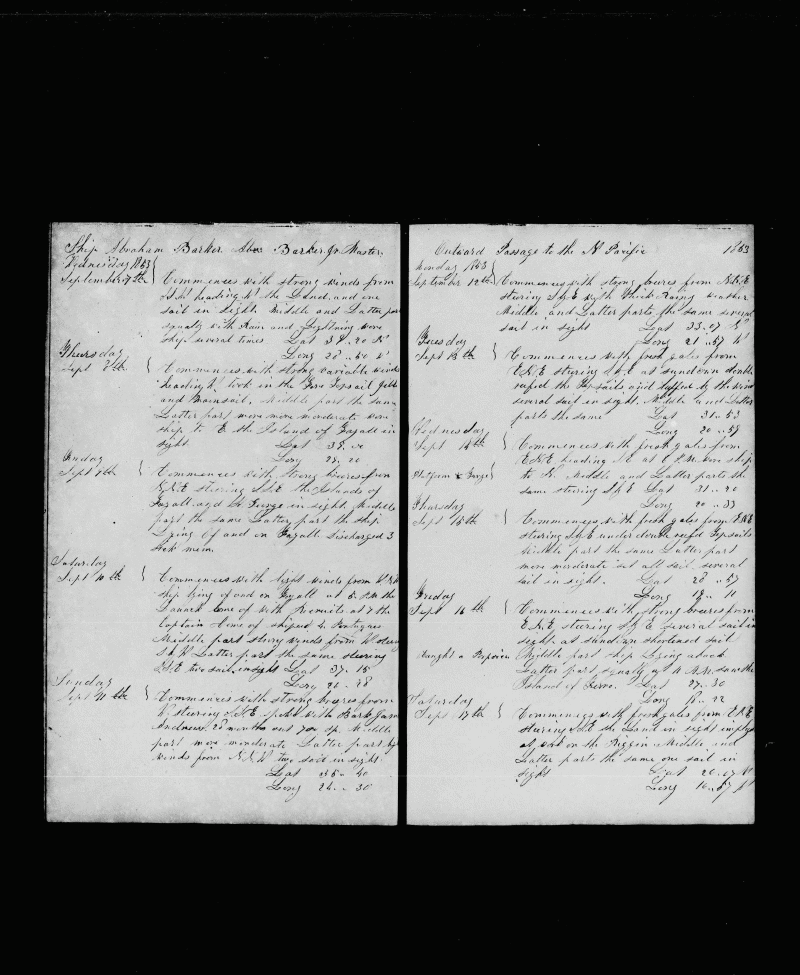 Ship Abraham Barker Abm Barker Jr Master.
Wednesday 1863
September 7th } Commences with strong winds from
heading the Land and one
sail in sight. Middle and Latter part
squaly with Rain and Lightning wore
ship several times. Lat 38..20 N
Long 28..50 W
Thursday
Sept 8th } Commences with strong variable winds
heading took in the Fore Topsail Jibb
and Mainsail. Middle part the same
Latter part more moderate wore
ship to E the Island of Fayall in
sight Lat 39..00
Long 28..20
Friday
Sept 9th } Commences with strong breeses from
N.N.E steering the Islands of
Fayall and St George in sight Middle
part the same Latter part the ship
Lying of and on Fayall discharged 3
sick men.
Saturday
Sept 10th } Commences with light winds from
ship lying of and on Fyall at 5 P.M the
came of with Recruits at 7 the
Captain Came of shiped 4 Portugues
Middle part strong winds from W steering
Latter part the same steering
two sail in sight Lat 37..15
Long 26..28
Sunday
Sept 11th } Commences with strong breeses from
steering spoke with Bark
20 months out 700 sp. Middle
part more moderate Latter part
winds from two sail in sight
Lat 35..40
Long 24..30
Outward Passage to the N Pacific 1863
Monday 1863
September 12th } Commences with strong breeses from N.N.E
steering with thick Rainy weather
Middle and Latter parts the same several
sail in sight Lat 33..07 N
Long 21..57 W
Tuesday
Sept 13th } Commences with fresh gales from
E.N.E steering at sundown double
reefed the Topsails and by the wind
several sail in sight. Middle and Latter
parts the same Lat 31..53
Long 20..57
Wednesday
Sept 14th } Commences with fresh gales from
E.N.E heading at P.M. wore ship
to N. Middle and Latter parts the
same steering Lat 31..20
Long 20..33
Thursday
Sept 15th } Commences with fresh gales from E.N.E
steering under double reefed Topsails
Middle part the same Latter part
more moderate set all sail. several
sail in sight. Lat 28..57
Long 19..11
Friday
Sept 16th } Commences with strong breeses from
E.N.E steering several sail in
sight. at sundown shortened sail
Caught a Porpoise Middle part ship Lying aback.
Latter part squaly at A.M. saw the
Island of Ferro. Lat 27..30
Long 18..22
Saturday
Sept 17th } Commences with fresh gales from E.N.E
steering the Land in sight
at work on the Riggin Middle and
Latter parts the same one sail in
sight Lat 26..07 N
Long 18..57 W